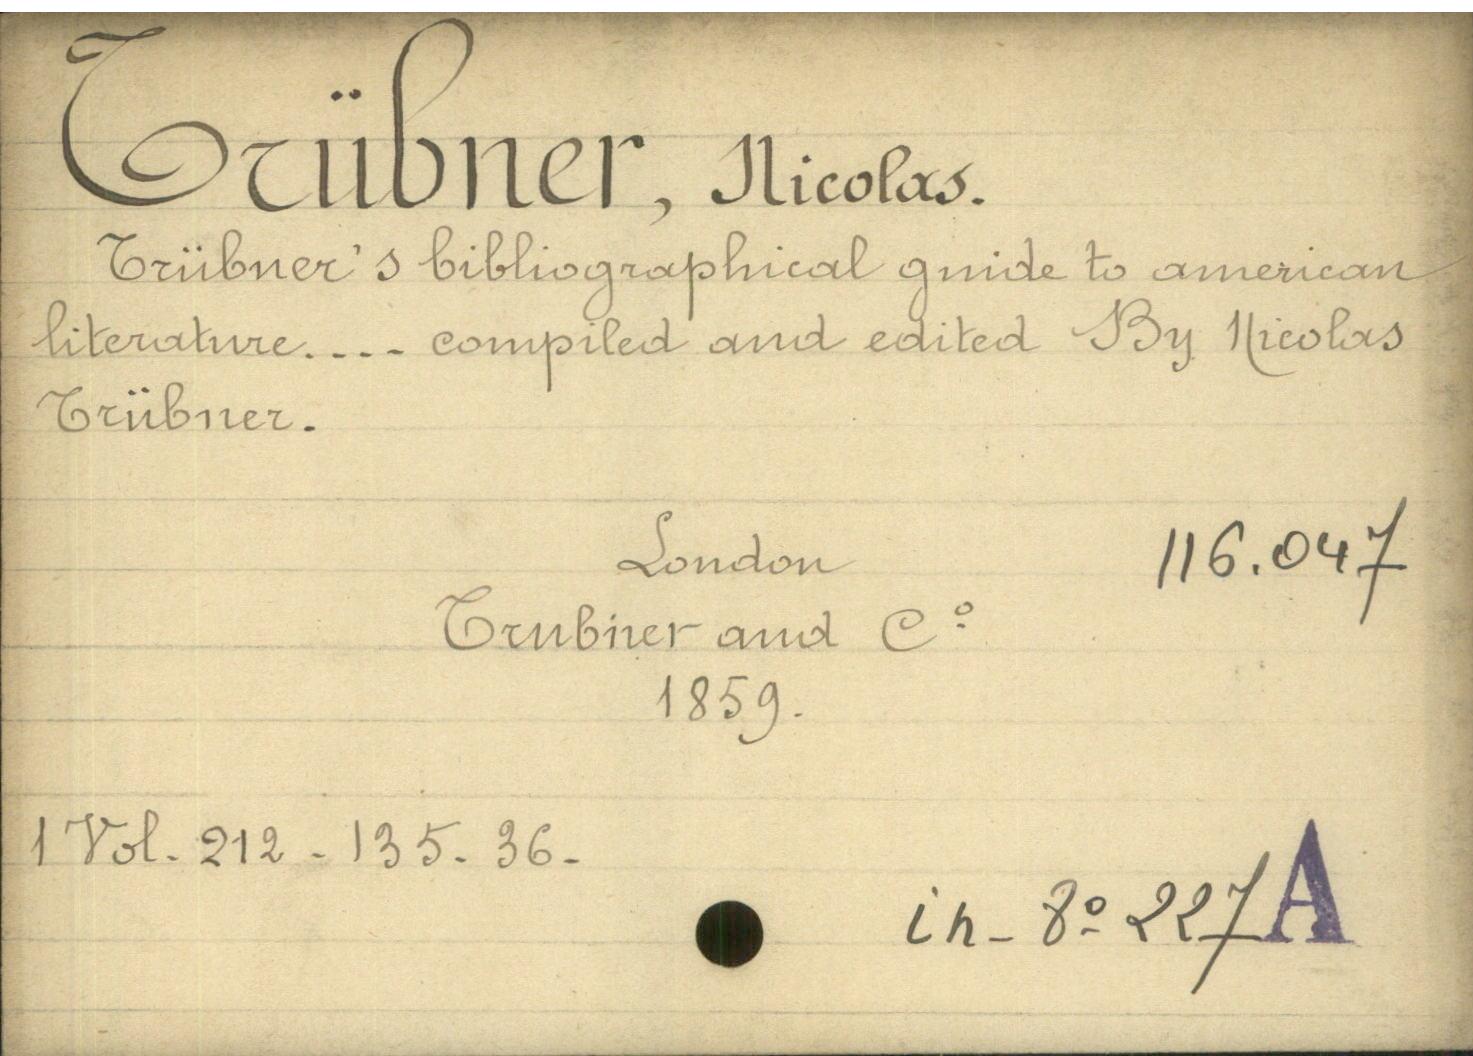 Trübner, Nicolas.
Trübner's bibliographical guide to american
literature.... compiled and edited By Nicolas
Trübner.
London
116.047
Trubner and Cº
1859.
1 Vol. 212 - 135. 36.
in-8º 227 A